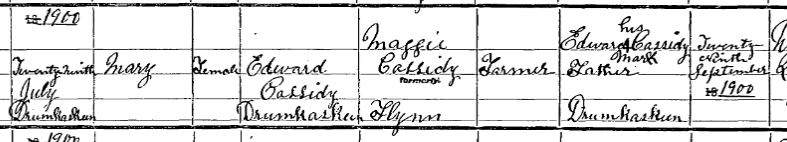 1900
Twenty Ninth
July
Drumkaskun
Mary
Female
Edward
Cassidy
Drumkaskun
Maggie
Cassidy
formerly
Flynn
Farmer
his
Edward X Cassidy
mark
Father
Drumkaskun
Twenty
Ninth
September
1900
1900